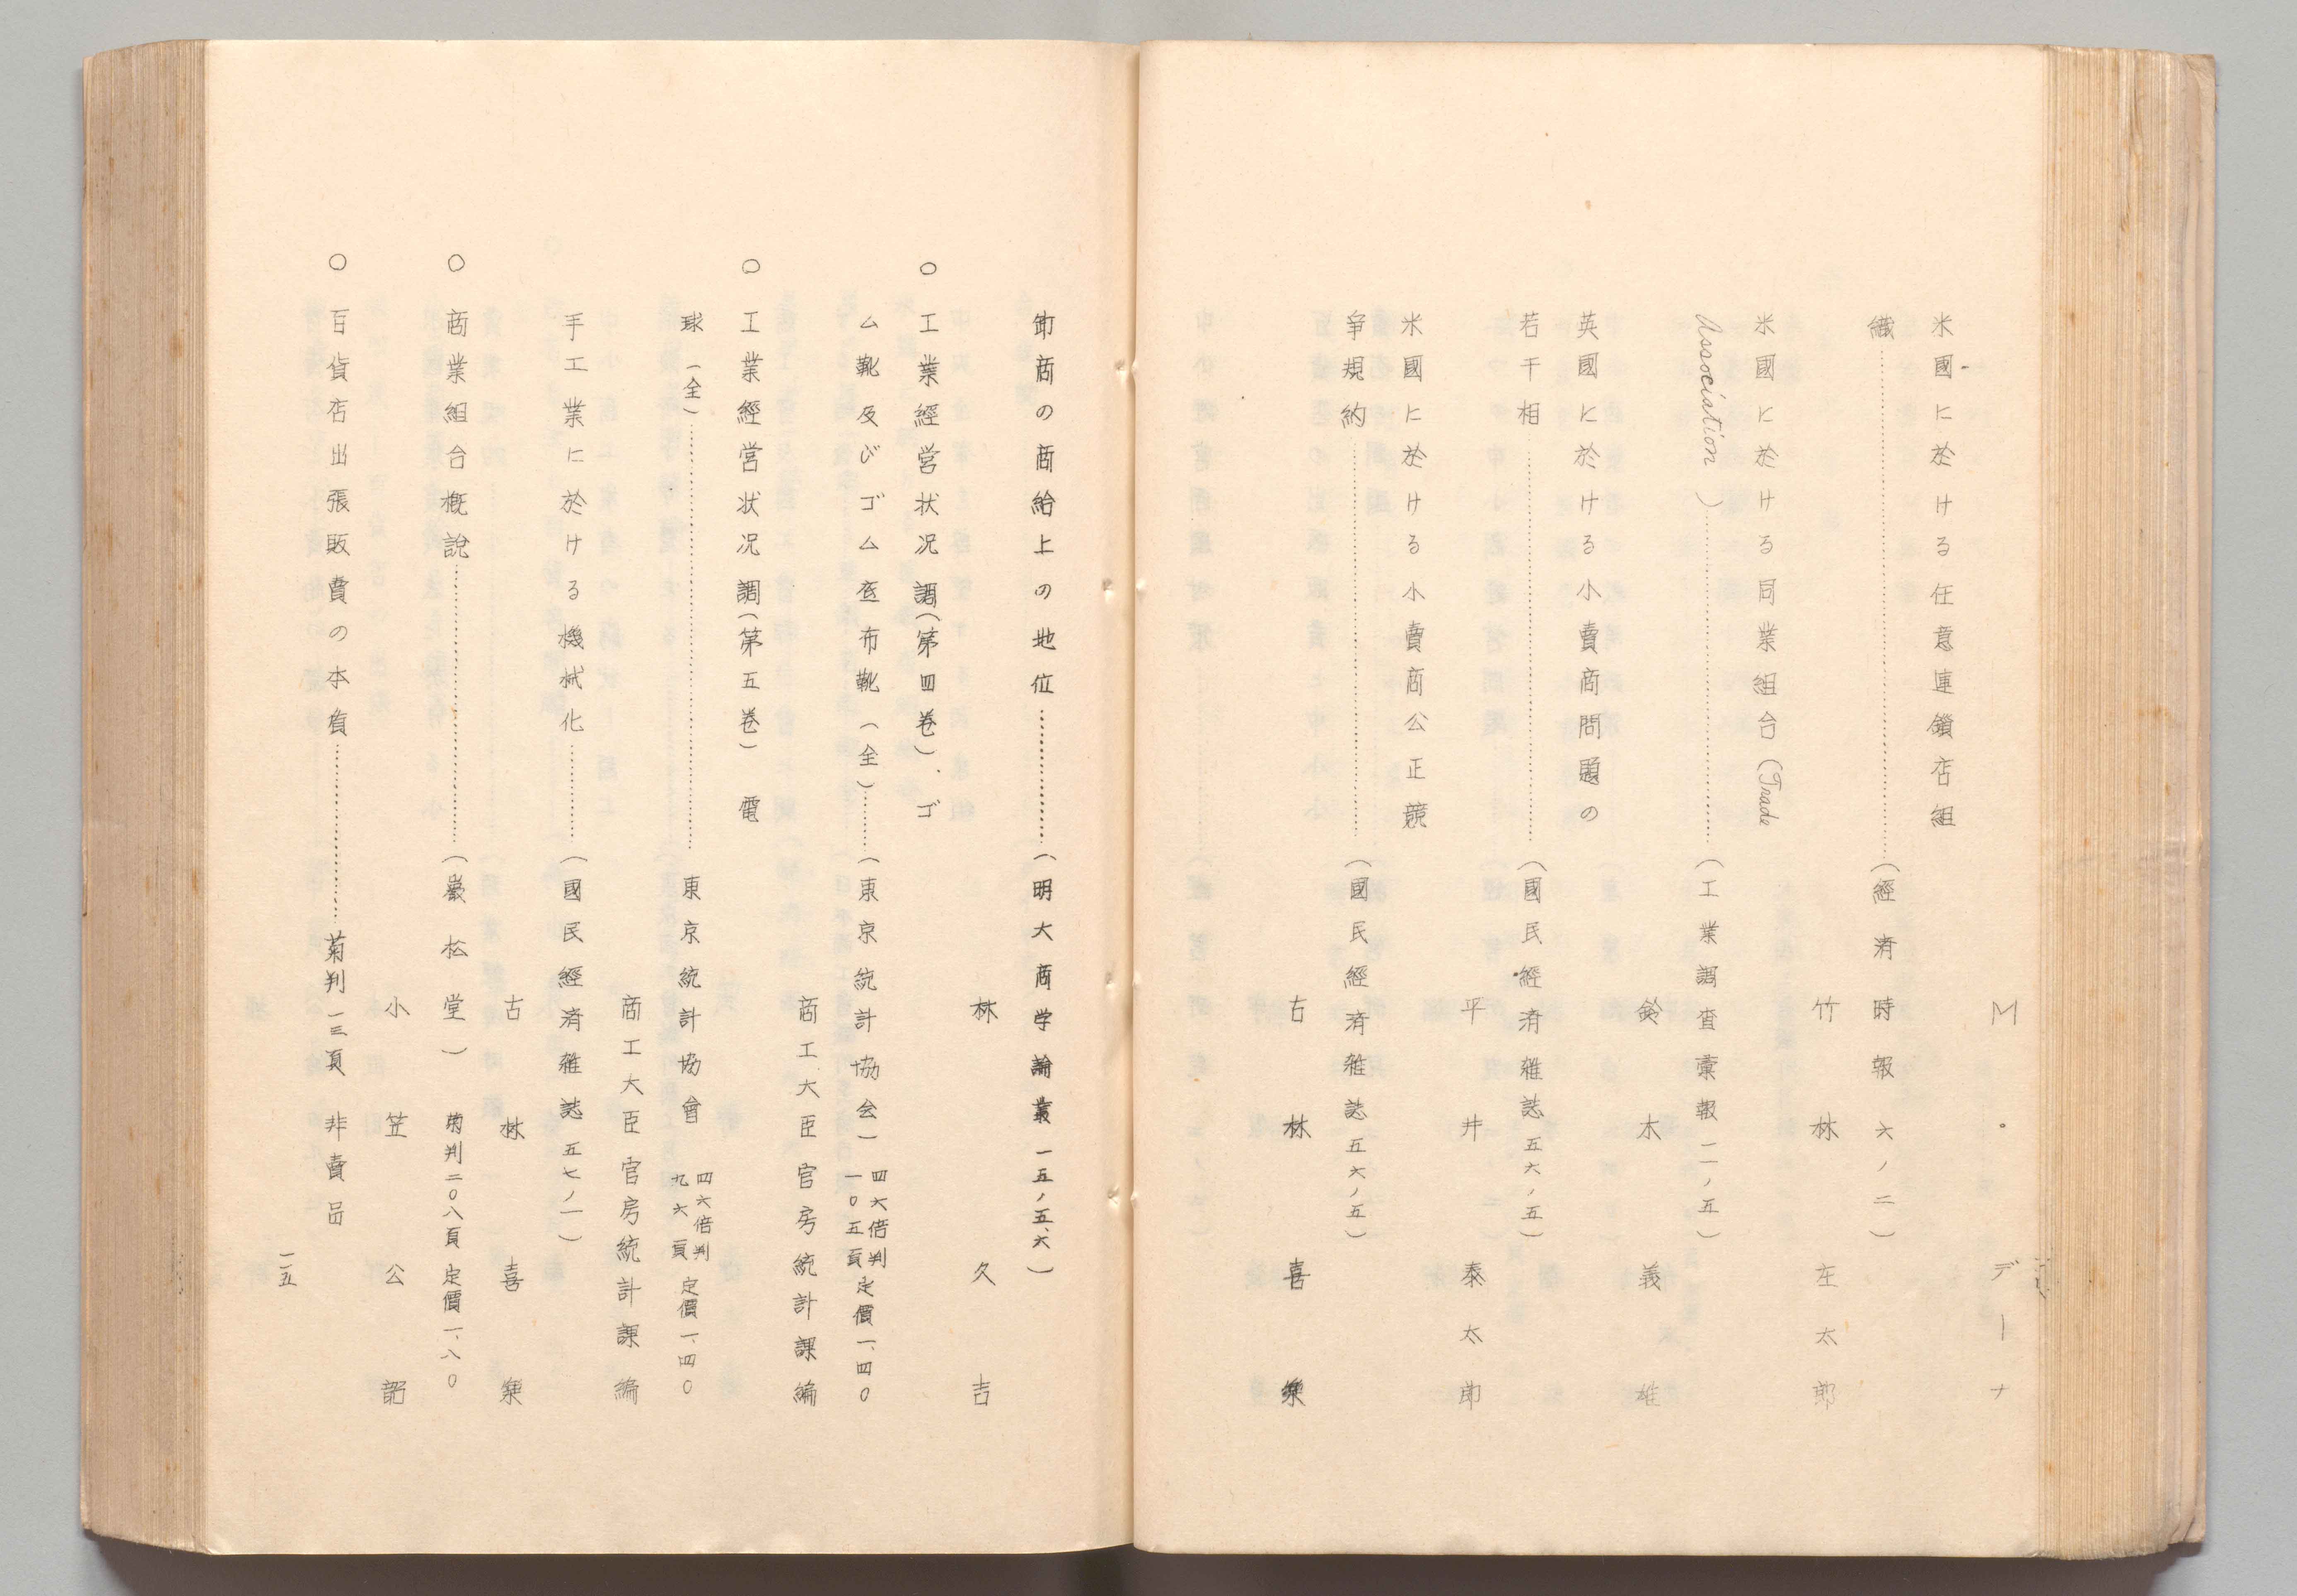 M・デーナ
米國に於ける任意連鎖店組
織……………………(經済時報 六ノ二)
竹林庄太郎
米國に於ける同業組合(Trade
Association)……………………(工業調査彙報 一一ノ五)
鈴木義雄
英國に於ける小賣商問題の
若干相……………………(國民經済雑誌 五六ノ五)
平井泰太郎
米國に於ける小賣商公正競
争規約……………………(國民經済雑誌 五六ノ五)
古林喜樂
卸商の商給上の地位……………(明大商学論叢 一五ノ五、六)
林久吉
○ 工業經営状况調(第四巻)、ゴ
ム靴及びゴム底布靴(全)………(東京統計協会) 四六倍判 一〇五頁 定價一、四〇
商工大臣官房統計課編
○ 工業經営状况調(第五巻) 電
球(全)……………………東京統計協會 四六倍判 九六頁 定價一、四〇
商工大臣官房統計課編
手工業に於ける機械化…………(國民經済雑誌 五七ノ一)
古林喜樂
○ 商業組合概說……………………(巖松堂) 菊判二〇八頁 定價一、八〇
小笠公韶
○ 百貨店出張販賣の本質………………菊判一三頁 非賣品
一一五